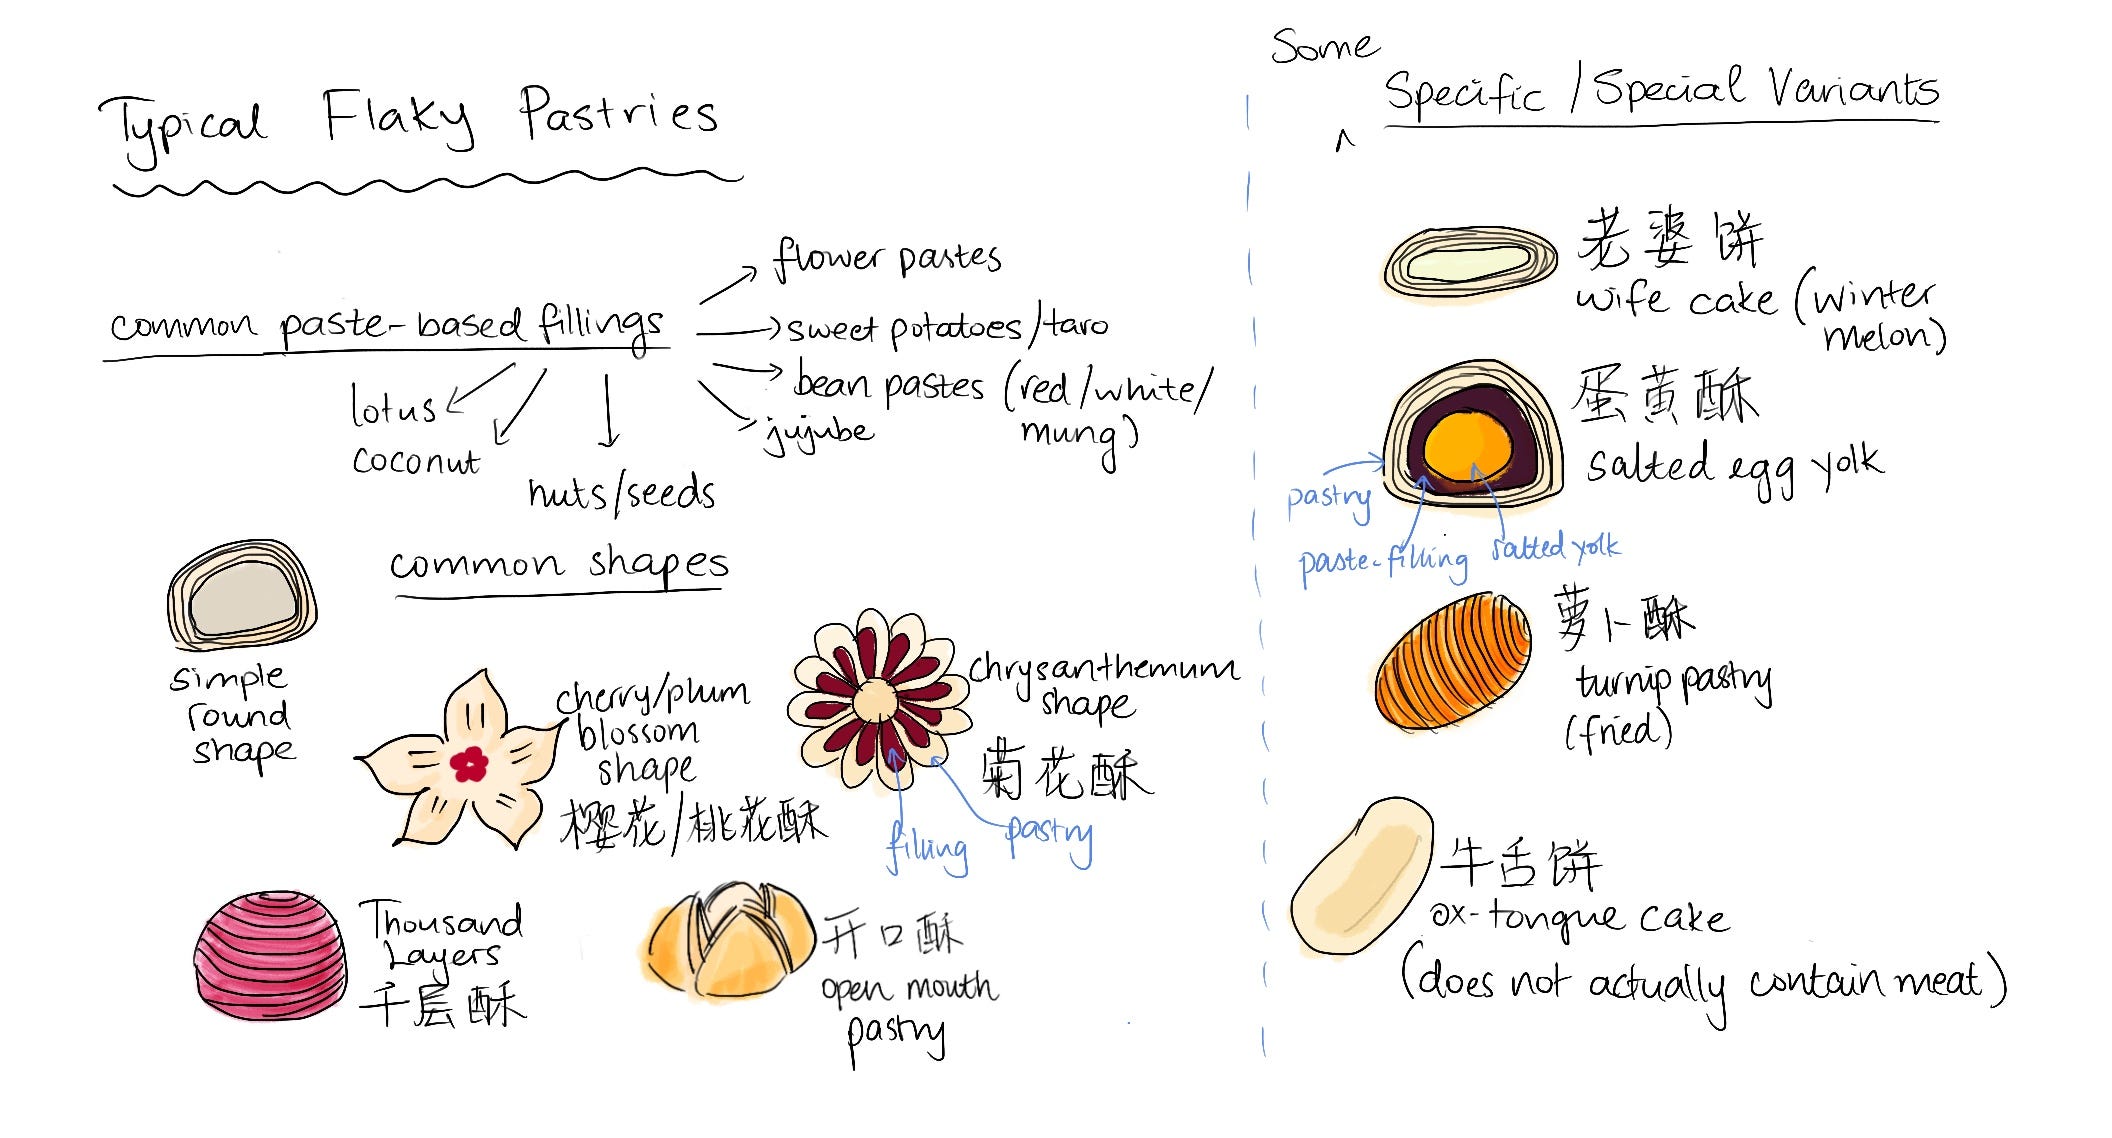 Typical Flaky Pastries
common paste-based fillings
flower pastes
sweet potatoes/taro
bean pastes (red/white/
mung)
jujube
lotus
coconut
nuts/seeds
common shapes
simple
round
shape
cherry/plum
blossom
shape
樱花/桃花酥
chrysanthemum
shape
菊花酥
filling
pastry
Thousand
Layers
千层酥
开口酥
open mouth
pastry
Some
^
Specific/Special Variants
老婆饼
wife cake (winter
melon)
蛋黄酥
salted egg yolk
pastry
paste-filling
salted yolk
萝卜酥
turnip pastry
(fried)
牛舌饼
ox-tongue cake
(does not actually contain meat)